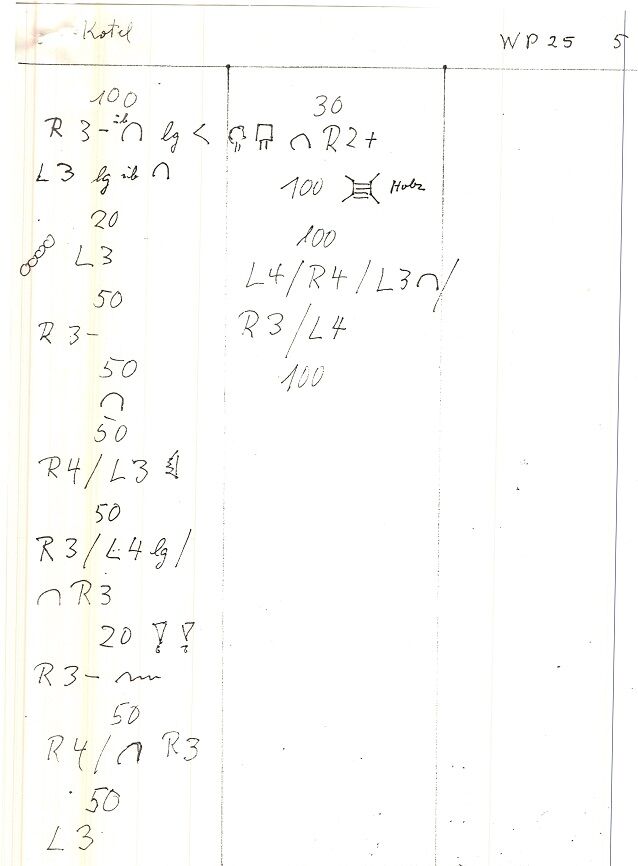 Kotel
WP25 5
100
R 3- üb ∩ lg <
L3 lg üb ∩
20
L3
50
R 3-
50
∩
50
R4/L3
50
R3/L4 lg/
∩ R3
20 !!
R3-
50
R4/∩ R3
50
L3
30
∩ R2+
100 Holz
100
L4/R4/L3∩/
R3/L4
100